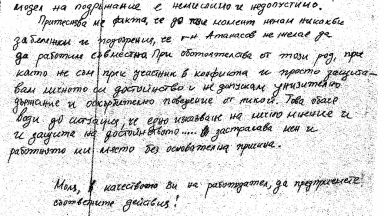 модел на подържание е немислимо и недопустимо.
Притеснява ме факта, че до този момент нямам никакви
забележки и подозрения, че г-н Атанасов не желае да
да работим съвместно. При обстоятелства от този род, при
като не съм пряк участник в конфликта и просто защита-
вам личното си достойнство и не допускам унизително
държание и оскърбително поведение от никой. Това обаче
води до ситуация, че едно изказване на лично мнение и
и защита на достойнството..... застрашава мен и
работното ми място без основателна причина.
Моля, в качеството Ви на работодател, да предприемете
съответните действия!